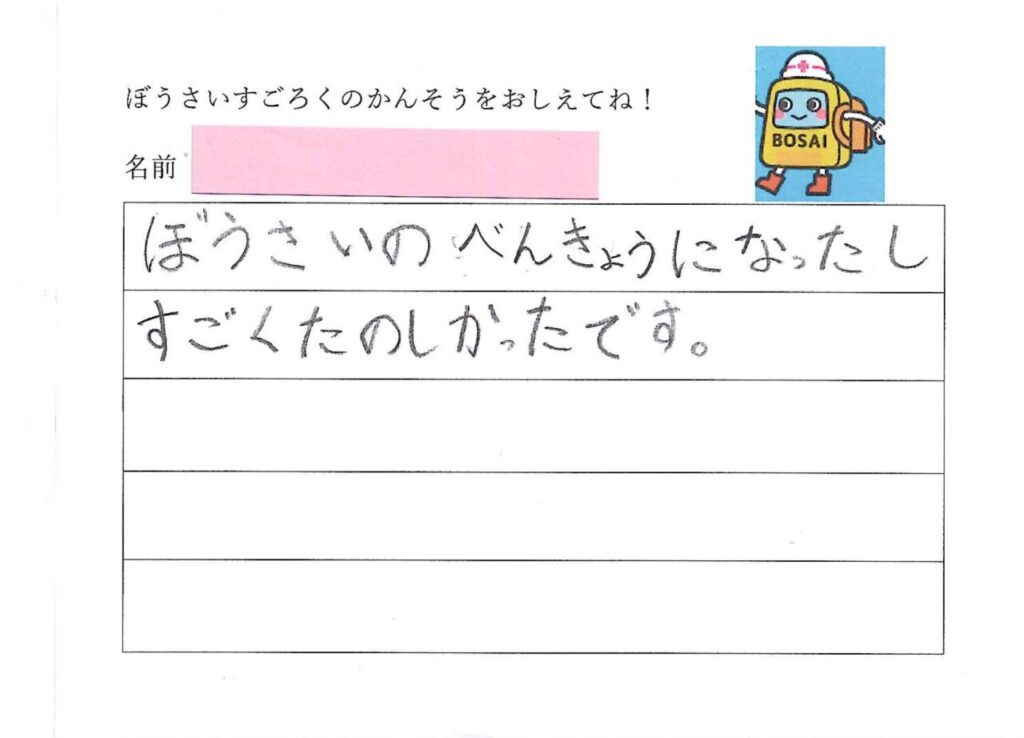 ぼうさいすごろくのかんそうをおしえてね！
名前
BOSAI
ぼうさいのべんきょうになったし
すごくたのしかったです。